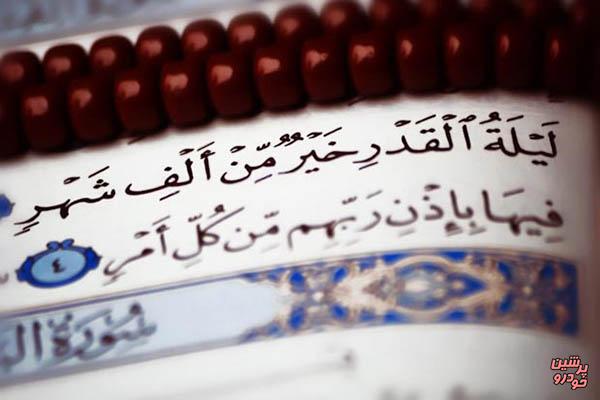 لَيْلَةُ ٱلْقَدْرِ خَيْرٌ مِّنْ أَلْفِ شَهْرٍ
فِيهَا بِإِذْنِ رَبِّهِم مِّن كُلِّ أَمْرٍ ٤
سُورَةُ
پرشین
خودرو